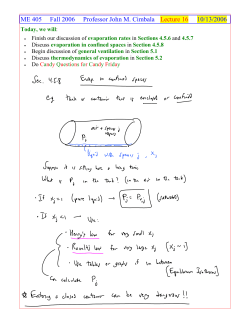 ME 405 Fall 2006 Professor John M. Cimbala Lecture 16 10/13/2006
Today, we will:
• Finish our discussion of evaporation rates in Sections 4.5.6 and 4.5.7
• Discuss evaporation in confined spaces in Section 4.5.8
• Begin discussion of general ventilation in Section 5.1
• Discuss thermodynamics of evaporation in Section 5.2
• Do Candy Questions for Candy Friday
Sec. 4.5.8 Evap. in confined spaces
e.g. tank or container that is enclosed or confined
air + species j
(vapor)
Pj
liquid with species j, xj
Suppose it is sitting here a long time.
What is Pj in the tank? (in the air in the tank)
• If xj = 1 (pure liquid) → Pj = Pv,j (saturated)
• If xj < 1 → Use:
• Henry's law for very small xj
• Raoult's law for very large xj (xj ~ 1)
• Use tables or graphs if in between
[Equilibrium Isotherm]
Can calculate Pj